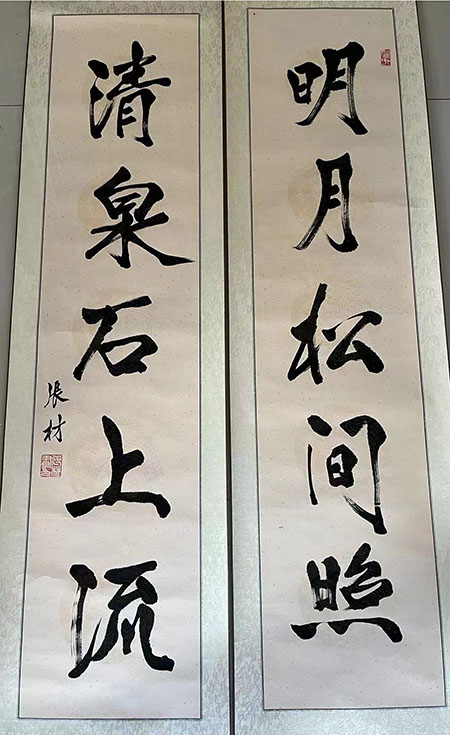 明月松间照
清泉石上流
張材